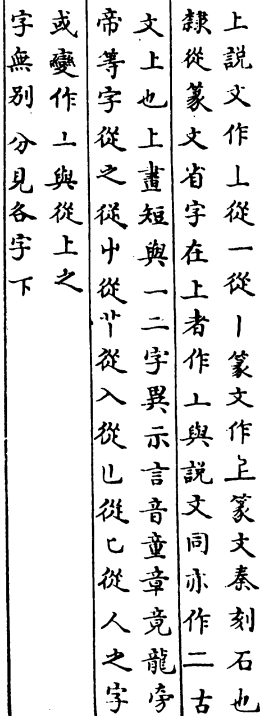 上說文作丄從一從丨篆文作𠄞篆文秦刻石也
隸從篆文省字在上者作丄與說文同亦作二古
文上也上畫短與一二字異示言音童章竟龍旁
帝等字從之從屮從𥫗從入從𠃊從匕從人之字
或變作亠與從上之
字無別分見各字下